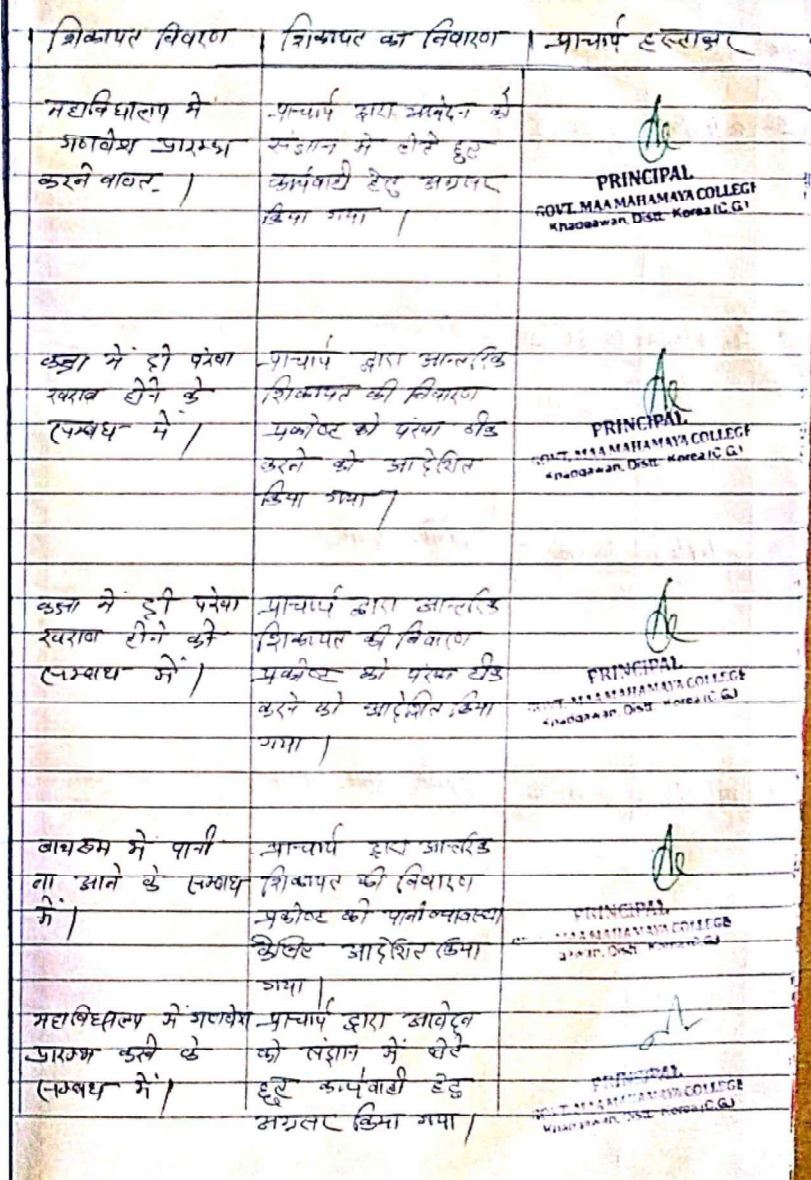 शिकायत विवरण
शिकायत का निवारण
प्राचार्य हस्ताक्षर
महाविद्यालय में
गणवेश प्रारम्भ
करने बावत ।
प्राचार्य द्वारा आवेदन को
संज्ञान में लेते हुए
कार्यवाही हेतु अग्रसर
किया गया ।
PRINCIPAL
GOVT. MAA MAHAMAYA COLLEGE
Khadgawan, Distt. Korea (C.G.)
कक्षा में दो पंखा
खराब होने के
सम्बंध में ।
प्राचार्य द्वारा आन्तरिक
शिकायत की निवारण
प्रकोष्ट को पंखा ठीक
करने को आदेशित
किया गया ।
PRINCIPAL
GOVT. MAA MAHAMAYA COLLEGE
Khadgawan, Distt. Korea (C.G.)
कक्षा में दो पंखा
खराब होने को
सम्बंध में ।
प्राचार्य द्वारा आन्तरिक
शिकायत की निवारण
प्रकोष्ट को पंखा ठीक
करने को आदेशित किया
गया ।
PRINCIPAL
GOVT. MAA MAHAMAYA COLLEGE
Khadgawan, Distt. Korea (C.G.)
बाथरूम में पानी
ना आने के सम्बंध
में ।
प्राचार्य द्वारा आन्तरिक
शिकायत की निवारण
प्रकोष्ट को पानी व्यावस्था
के लिए आदेशित किया
गया ।
PRINCIPAL
MAA MAHAMAYA COLLEGE
Distt. Korea (C.G.)
महाविद्यालय में गणवेश
प्रारम्भ करने के
सम्बंध में ।
प्राचार्य द्वारा आवेदन
को संज्ञान में लेते
हुए कार्यवाही हेतु
अग्रसर किया गया ।
PRINCIPAL
GOVT. MAA MAHAMAYA COLLEGE
Khadgawan, Distt. Korea (C.G.)